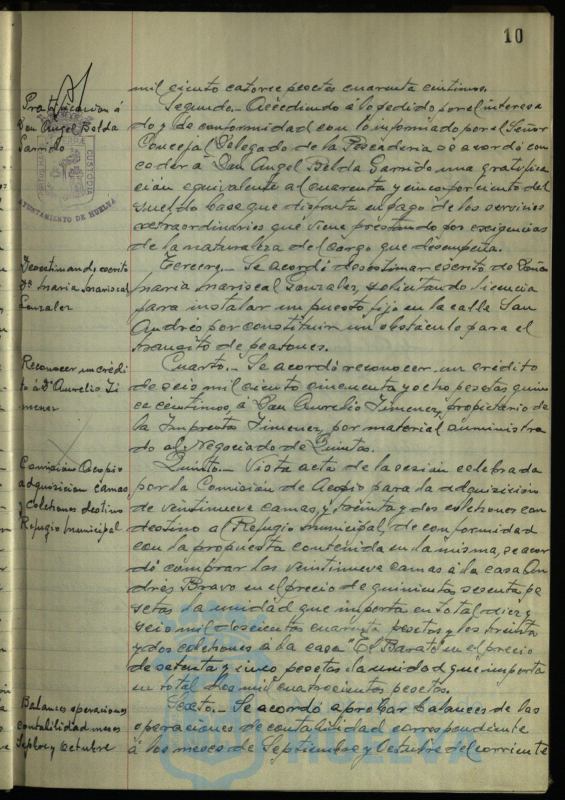 10
mil ciento catorce pesetas cuarenta céntimos.
Gratificacion á
Don Angel Belda
Garrido
CUSTODIA
AYUNTAMIENTO DE HUELVA
Segundo.- Accediendo á lo pedido por el interesa
do y de conformidad con lo informado por el Señor
Concejal Delegado de la Pescaderia se acordó con
ceder á Don Angel Belda Garrido una gratifica
ción equivalente al cuarenta y cinco por ciento del
sueldo base que disfruta en pago de los servicios
extraordinarios que viene prestando por exigencias
de la naturaleza del cargo que desempeña.
Desestimando escrito
Dª Maria Mariscal
Gonzalez
Tercero.- Se acordó desestimar escrito de Doña
Maria Mariscal Gonzalez, solicitando licencia
para instalar un puesto fijo en la calle San
Andrés por constituir un obstáculo para el
transito de peatones.
Reconocer un crédi
to á D. Aurelio Ji
menez
Cuarto.- Se acordó reconocer un crédito
de seis mil ciento cincuenta y ocho pesetas quin
ce céntimos, á Don Aurelio Jimenez, propietario de
la Imprenta Jimenez, por material suministra
do al Negociado de Quintas.
Comisión Acopio
adquisicion camas
y colchones destino
Refugio Municipal
Quinto.- Vista acta de la sesión celebrada
por la Comisión de Acopio para la adquisición
de veintinueve camas, y treinta y dos colchones con
destino al Refugio Municipal, de conformidad
con la propuesta contenida en la misma, se acor
dó comprar las veintinueve camas á la casa An
drés Bravo en el precio de quinientas sesenta pe
setas la unidad que importa en total diez y
seis mil doscientas cuarenta pesetas y los treinta
y dos colchones á la casa "El Barato" en el precio
de setenta y cinco pesetas la unidad que importa
en total dos mil cuatrocientas pesetas.
Balances operaciones
contabilidad meses
Septbre y Octubre
Sexto.- Se acordó aprobar balances de las
operaciones de contabilidad correspondiente
á los meses de Septiembre y Octubre del corriente
HUELVA